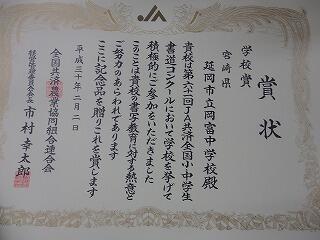 賞状
学校賞
宮崎県
延岡市立岡富中学校殿
貴校は第六十二回JA共済全国小・中学生
書道コンクールにおいて学校を挙げて
積極的にご参加をいただきました
このことは貴校の書写教育に対する熱意と
ご努力のあらわれであります
ここに記念品を贈りこれを賞します
平成三十年二月二日
全国共済農業協同組合連合会
経営管理委員会会長 市村幸太郎